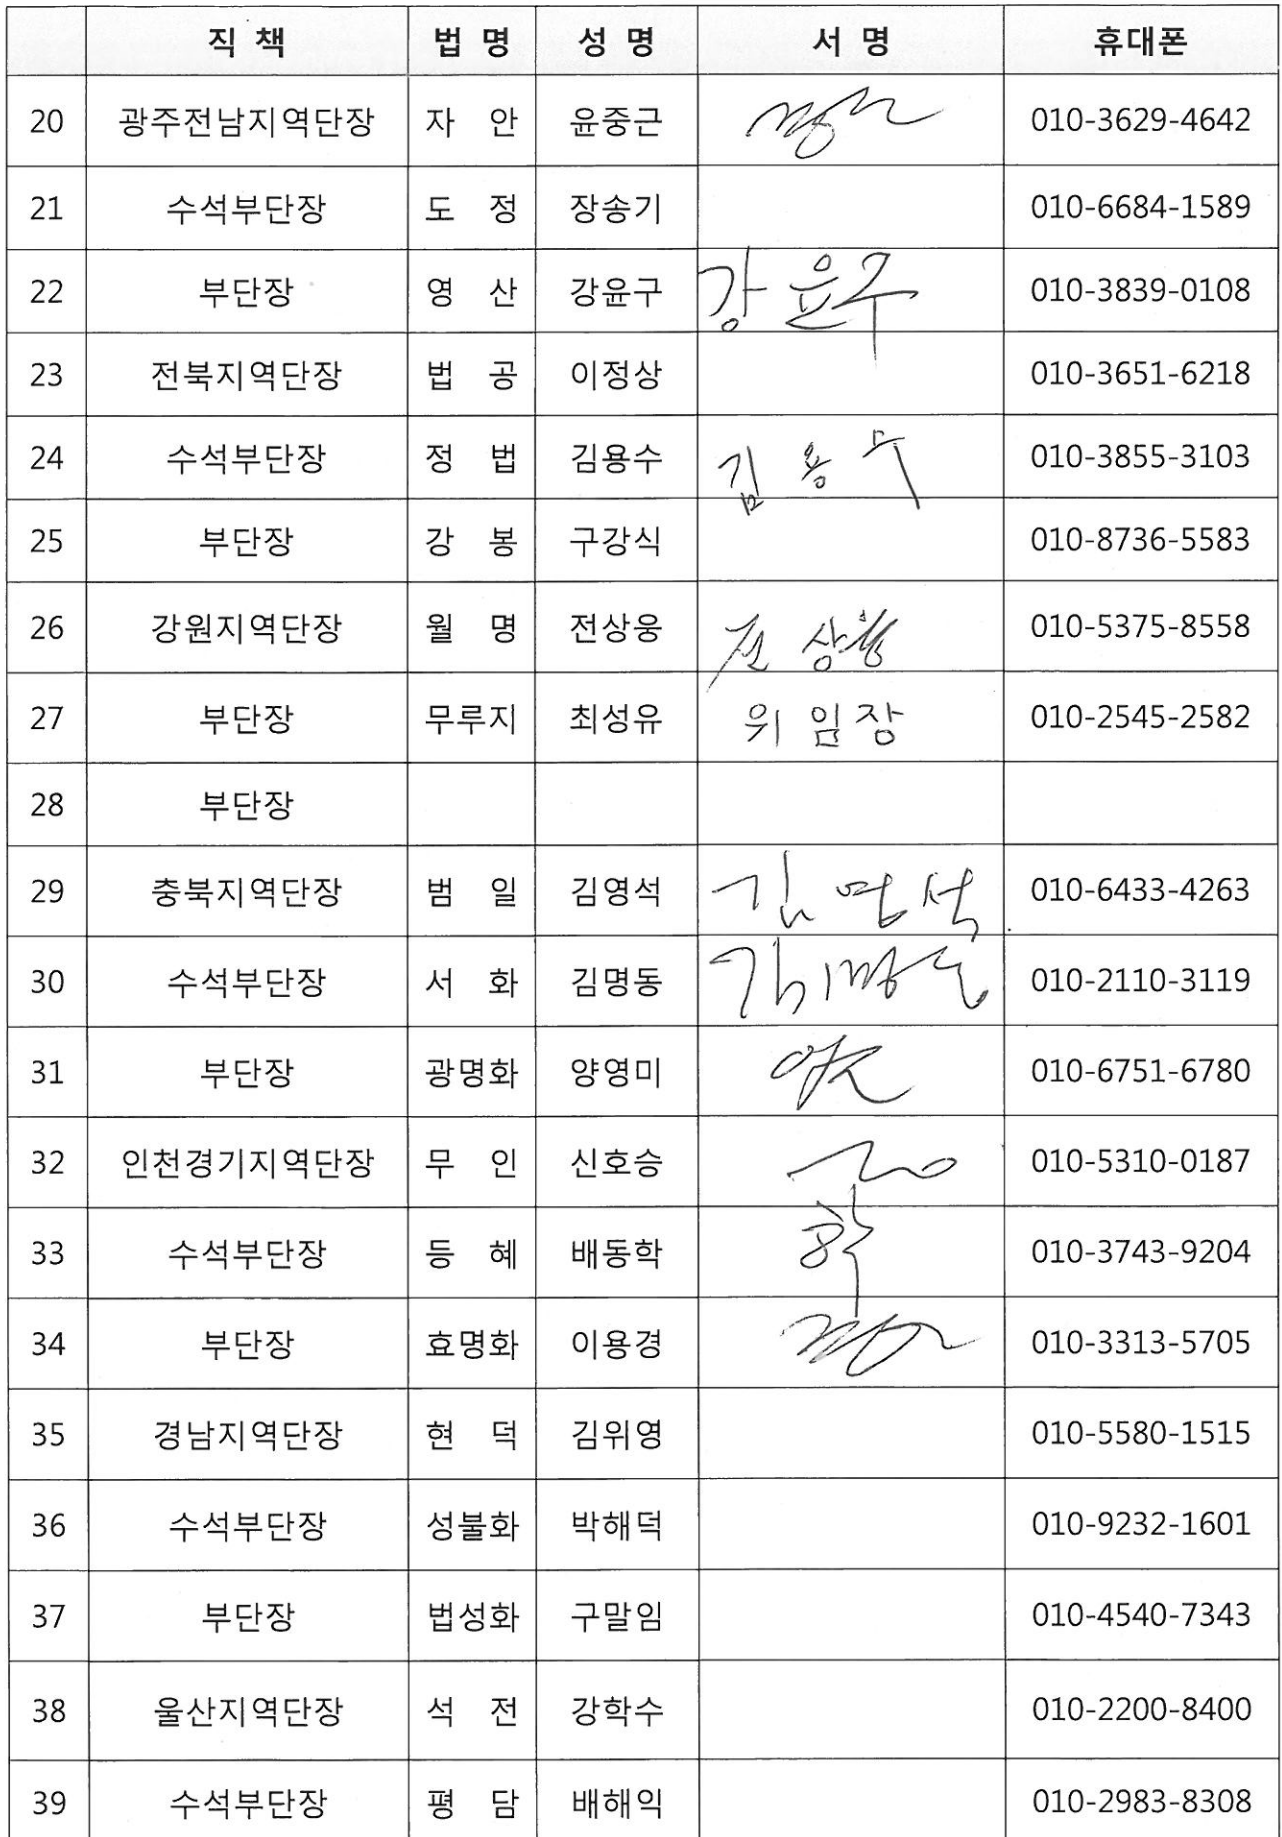 직 책 법 명 성 명 서 명 휴대폰
20 광주전남지역단장 자 안 윤중근 010-3629-4642
21 수석부단장 도 정 장송기 010-6684-1589
22 부단장 영 산 강윤구 강윤구 010-3839-0108
23 전북지역단장 법 공 이정상 010-3651-6218
24 수석부단장 정 법 김용수 김용수 010-3855-3103
25 부단장 강 봉 구강식 010-8736-5583
26 강원지역단장 월 명 전상웅 전상웅 010-5375-8558
27 부단장 무루지 최성유 위임장 010-2545-2582
28 부단장
29 충북지역단장 범 일 김영석 김영석 010-6433-4263
30 수석부단장 서 화 김명동 김명동 010-2110-3119
31 부단장 광명화 양영미 010-6751-6780
32 인천경기지역단장 무 인 신호승 010-5310-0187
33 수석부단장 등 혜 배동학 학 010-3743-9204
34 부단장 효명화 이용경 010-3313-5705
35 경남지역단장 현 덕 김위영 010-5580-1515
36 수석부단장 성불화 박해덕 010-9232-1601
37 부단장 법성화 구말임 010-4540-7343
38 울산지역단장 석 전 강학수 010-2200-8400
39 수석부단장 평 담 배해익 010-2983-8308